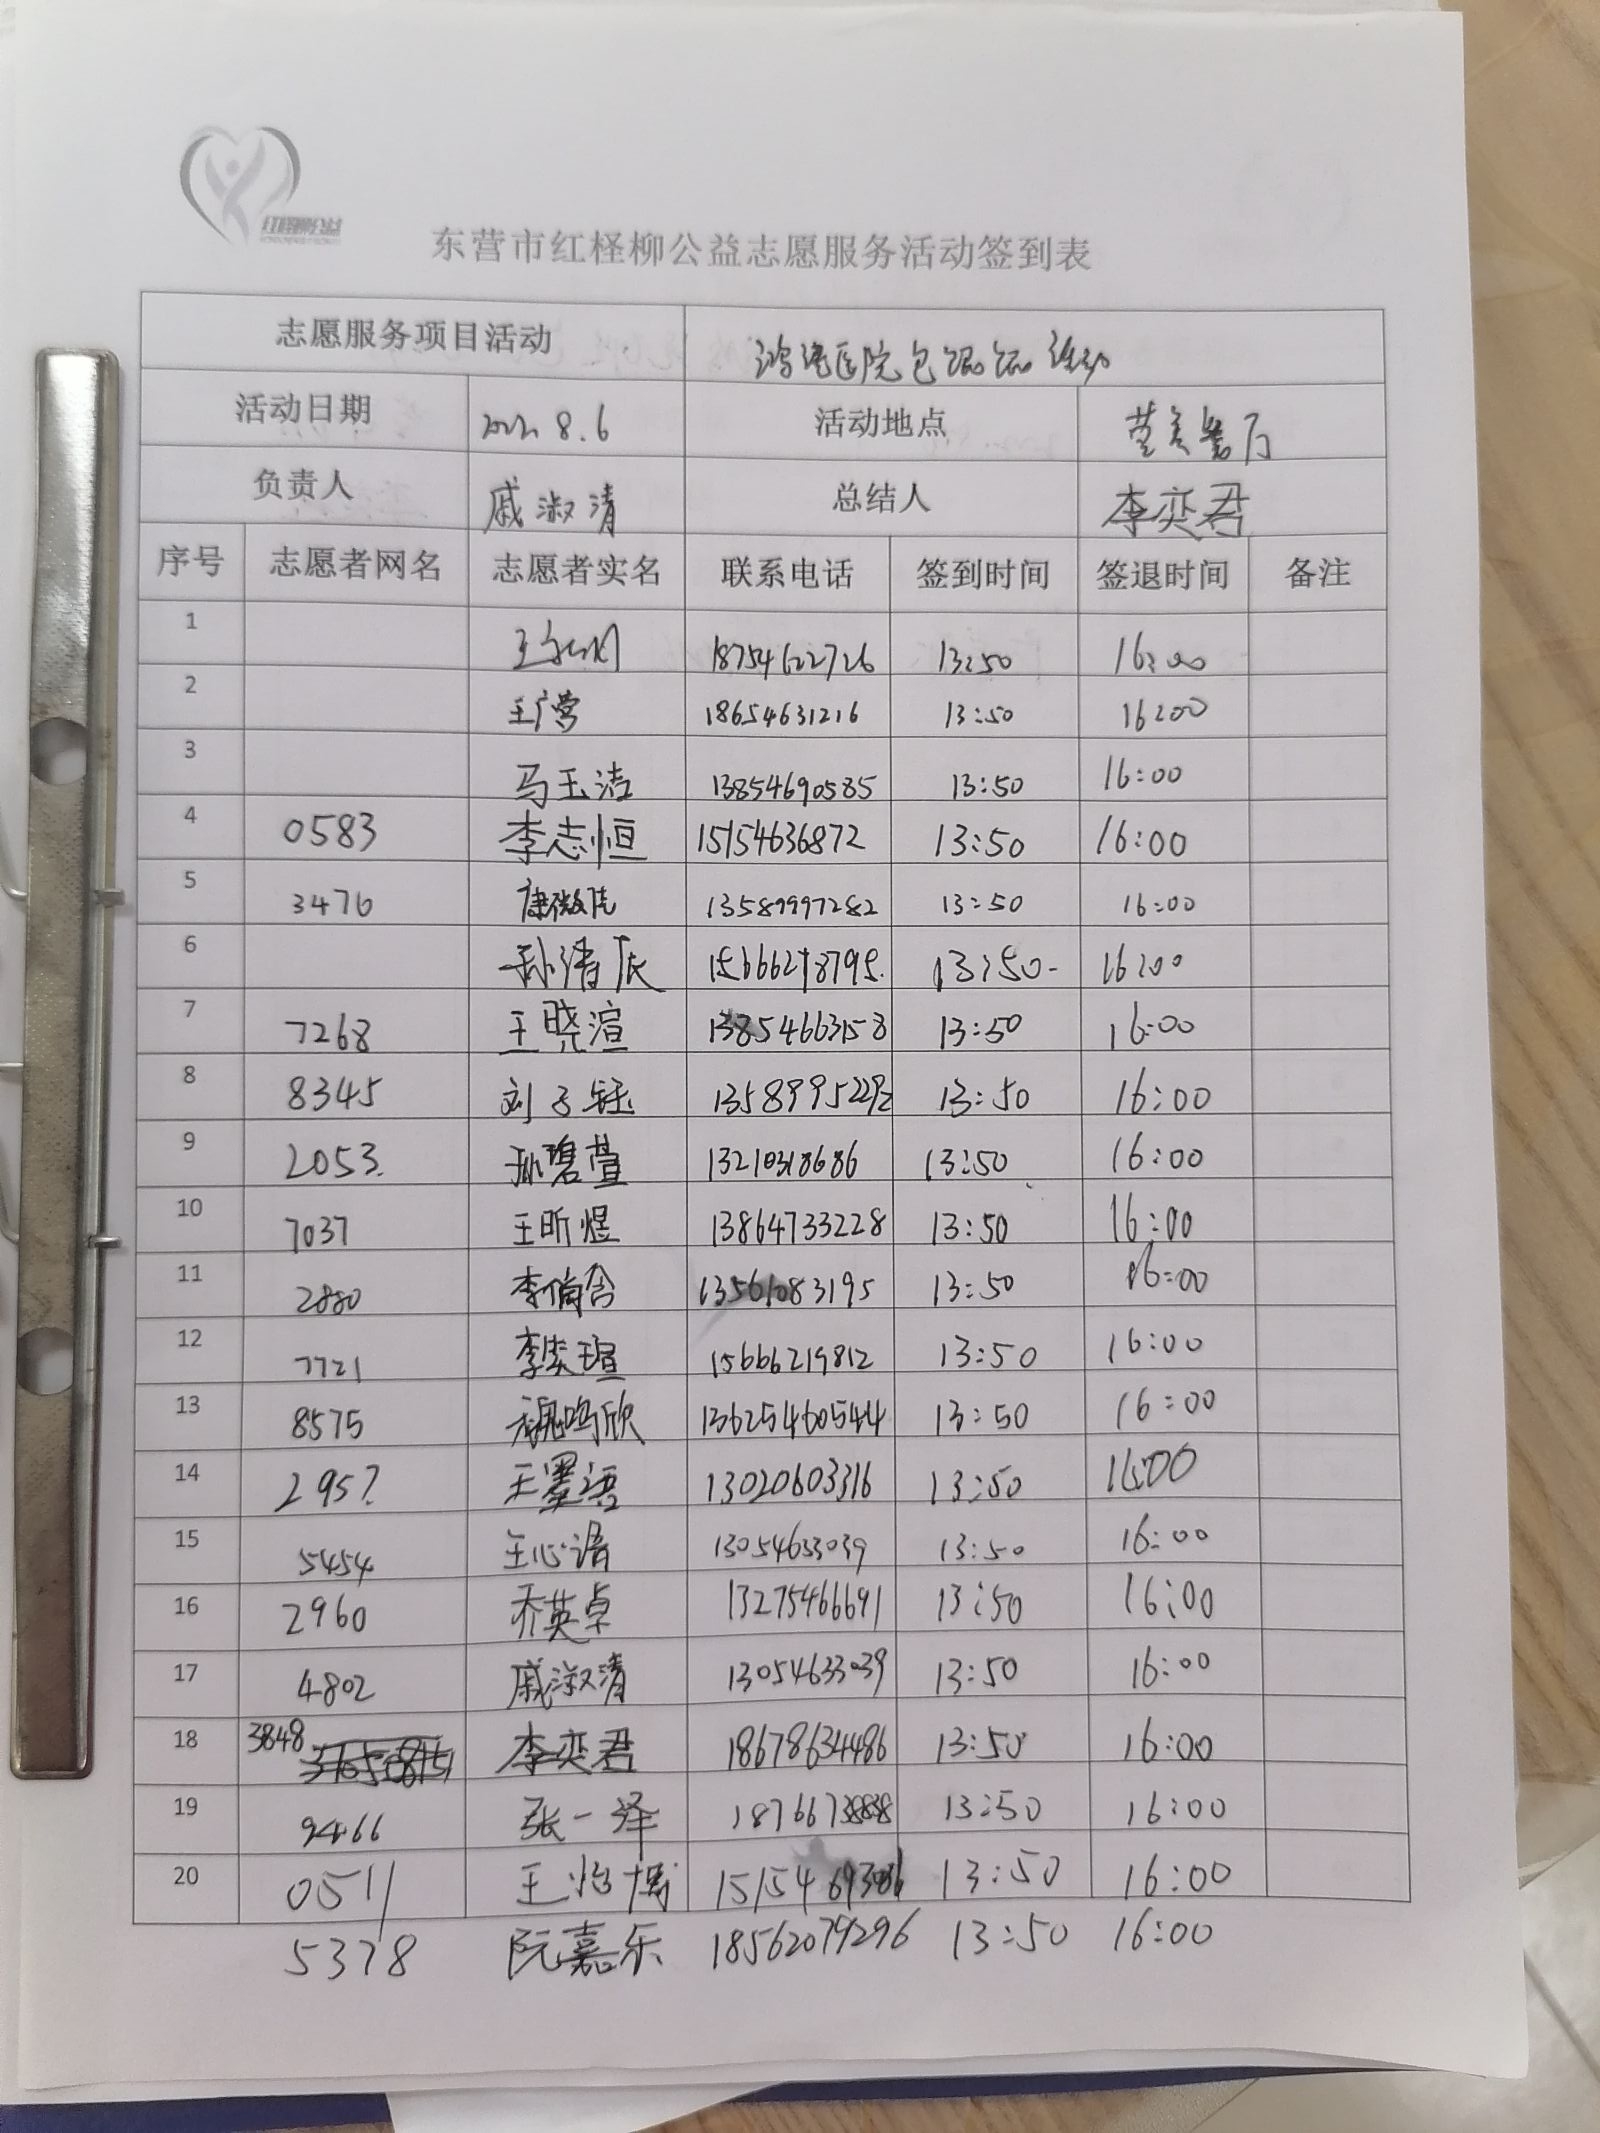 红柽柳公益
东营市红柽柳公益志愿服务活动签到表
志愿服务项目活动 鸿港医院包馄饨活动
活动日期 2022.8.6 活动地点 餐厅
负责人 戚淑清 总结人 李奕君
序号 志愿者网名 志愿者实名 联系电话 签到时间 签退时间 备注
1 18754622726 13:50 16:00
2 王广营 18654631216 13:50 16:00
3 马玉洁 13854690585 13:50 16:00
4 0583 李志恒 15154636872 13:50 16:00
5 3476 康微 13589997282 13:50 16:00
6 孙清辰 13:50 16:00
7 7268 王晓渲 13854663158 13:50 16:00
8 8345 刘子钰 13589995292 13:50 16:00
9 2053 孙碧萱 13210318686 13:50 16:00
10 7037 王昕煜 13864733228 13:50 16:00
11 2880 李俏含 13561083195 13:50 16:00
12 7721 李奕瑄 15666219812 13:50 16:00
13 8575 魏鸣欣 13625460544 13:50 16:00
14 王墨语 13020603316 13:50 16:00
15 5454 王心语 13054633039 13:50 16:00
16 2960 乔英卓 13275466691 13:50 16:00
17 4802 戚淑清 13054633039 13:50 16:00
18 3848 李奕君 18678634486 13:50 16:00
19 9466 张一泽 18766738838 13:50 16:00
20 0511 王怡博 13:50 16:00
5378 阮嘉乐 18562079296 13:50 16:00